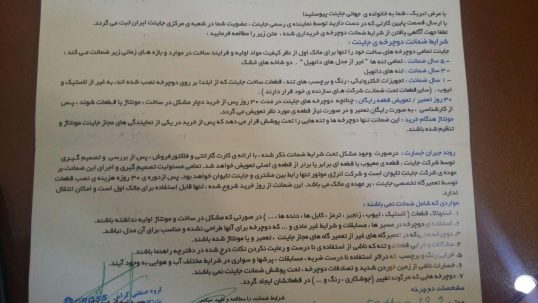 با عرض تبریک ، شما به خانواده ی جهانی جاینت پیوستید!
با ارسال قسمت پایین کارتی که در دست دارید توسط نماینده ی رسمی جاینت ، عضویت شما در شعبه ی مرکزی جاینت ایران ثبت می گردد.
لطفا جهت آگاهی یافتن از شرایط ضمانت دوچرخه ی خریداری شده ، متن زیر را مطالعه فرمایید :
شرایط ضمانت دوچرخه ی جاینت :
جاینت تمامی دوچرخه های ساخت خود را تنها برای مالک اول از نظر کیفیت مواد اولیه و فرایند ساخت در موارد و بازه های زمانی زیر ضمانت می کند :
- ۵ سال ضمانت : تمامی تنه ها " غیر از مدل های دانهیل " ، دو شاخه های خشک
- ۳ سال ضمانت : تنه های دانهیل
- ۱ سال ضمانت : تجهیزات الکترونیکی ، رنگ و برچسب های تنه ، قطعات ساخت جاینت که از ابتدا بر روی دوچرخه نصب شده اند، به غیر از لاستیک و
تیوب . (سایر قطعات تحت ضمانت شرکت های سازنده ی خود قرار دارند )
۳۰ روز تعمیر / تعویض قطعه رایگان : چنانچه دوچرخه های جاینت در مدت ۳۰ روز پس از خرید دچار مشکل در ساخت ، مونتاژ یا قطعات شوند ، پس از
کارشناسی ، به صورت رایگان تعمیر و در صورت نیاز قطعه ی مورد نظر تعویض می گردد.
مونتاژ هنگام خرید : این ضمانت تنها دوچرخه ها و تنه هایی را تحت پوشش قرار می دهد که پس از خرید در یکی از نمایندگی های مجاز جاینت ، مونتاژ و
تنظیم شده باشند.
روند جبران خسارت : درصورت وجود مشکل تحت شرایط ضمانت ذکر شده ، با ارائه ی کارت گارانتی و فاکتور فروش ، پس از بررسی و تصمیم گیری
توسط شرکت جاینت ، قطعه ی معیوب با قطعه ای برابر یا برتر از قطعه ی اصلی تعویض خواهد شد. تمامی مسئولیت تصمیم گیری و اجرای این ضمانت بر
عهده ی جاینت تایوان است و شرکت انرژی موتور تنها رابط بین مشتری و جاینت تایوان خواهد بود. پس از دوره ی ۳۰ روزه هزینه ی نصب قطعات
توسط تعمیرگاه تخصصی جاینت ، بر عهده ی مالک می باشد. این ضمانت از روز خرید شروع شده ، تنها قابل استفاده برای مالک اول است و امکان انتقال
ندارد.
مواردی که شامل ضمانت نمی باشند :
۱. استهلاک قطعات ( لاستیک ، تیوب ، زنجیر ، ترمز ، کابل ها ، دنده ها ، ... ) در صورتی که مشکل در ساخت و مونتاژ اولیه نداشته باشند.
۲. استفاده ی دوچرخه در مسیر ها ، مسابقات و شرایط غیر عادی و ... که دوچرخه برای آنها طراحی نشده و مناسب برای آن مدل نباشد.
۳. دوچرخه هایی که در تعمیرگاه های غیر از تعمیر گاه های مجاز جاینت ، تعمیر و یا مونتاژ شده باشند.
۴. مشکلات و خرابی قطعات و تنه که ناشی از استفاده ی نا درست و رعایت نکردن نکات درج شده در دفترچه راهنما باشند.
۵. خرابی رنگ و برچسب که در اثر استفاده نا درست، ضربه ، مسابقات ، پرشها و سواری در شرایط مختلف آب و هوایی به وجود آیند.
۶. خسارات ناشی از زمین خوردن شدید و تصادفات دوچرخه ، تحت پوشش ضمانت جاینت نمی باشند.
۷. دوچرخه هایی که هرگونه تغییر (جوشکاری ، رنگ و ... ) در قطعاتشان ایجاد گردد.
مشخصات دوچرخه
شرایط ضمانت را مطالعه و تایید میکنم
گروه صنعتی
CROSS